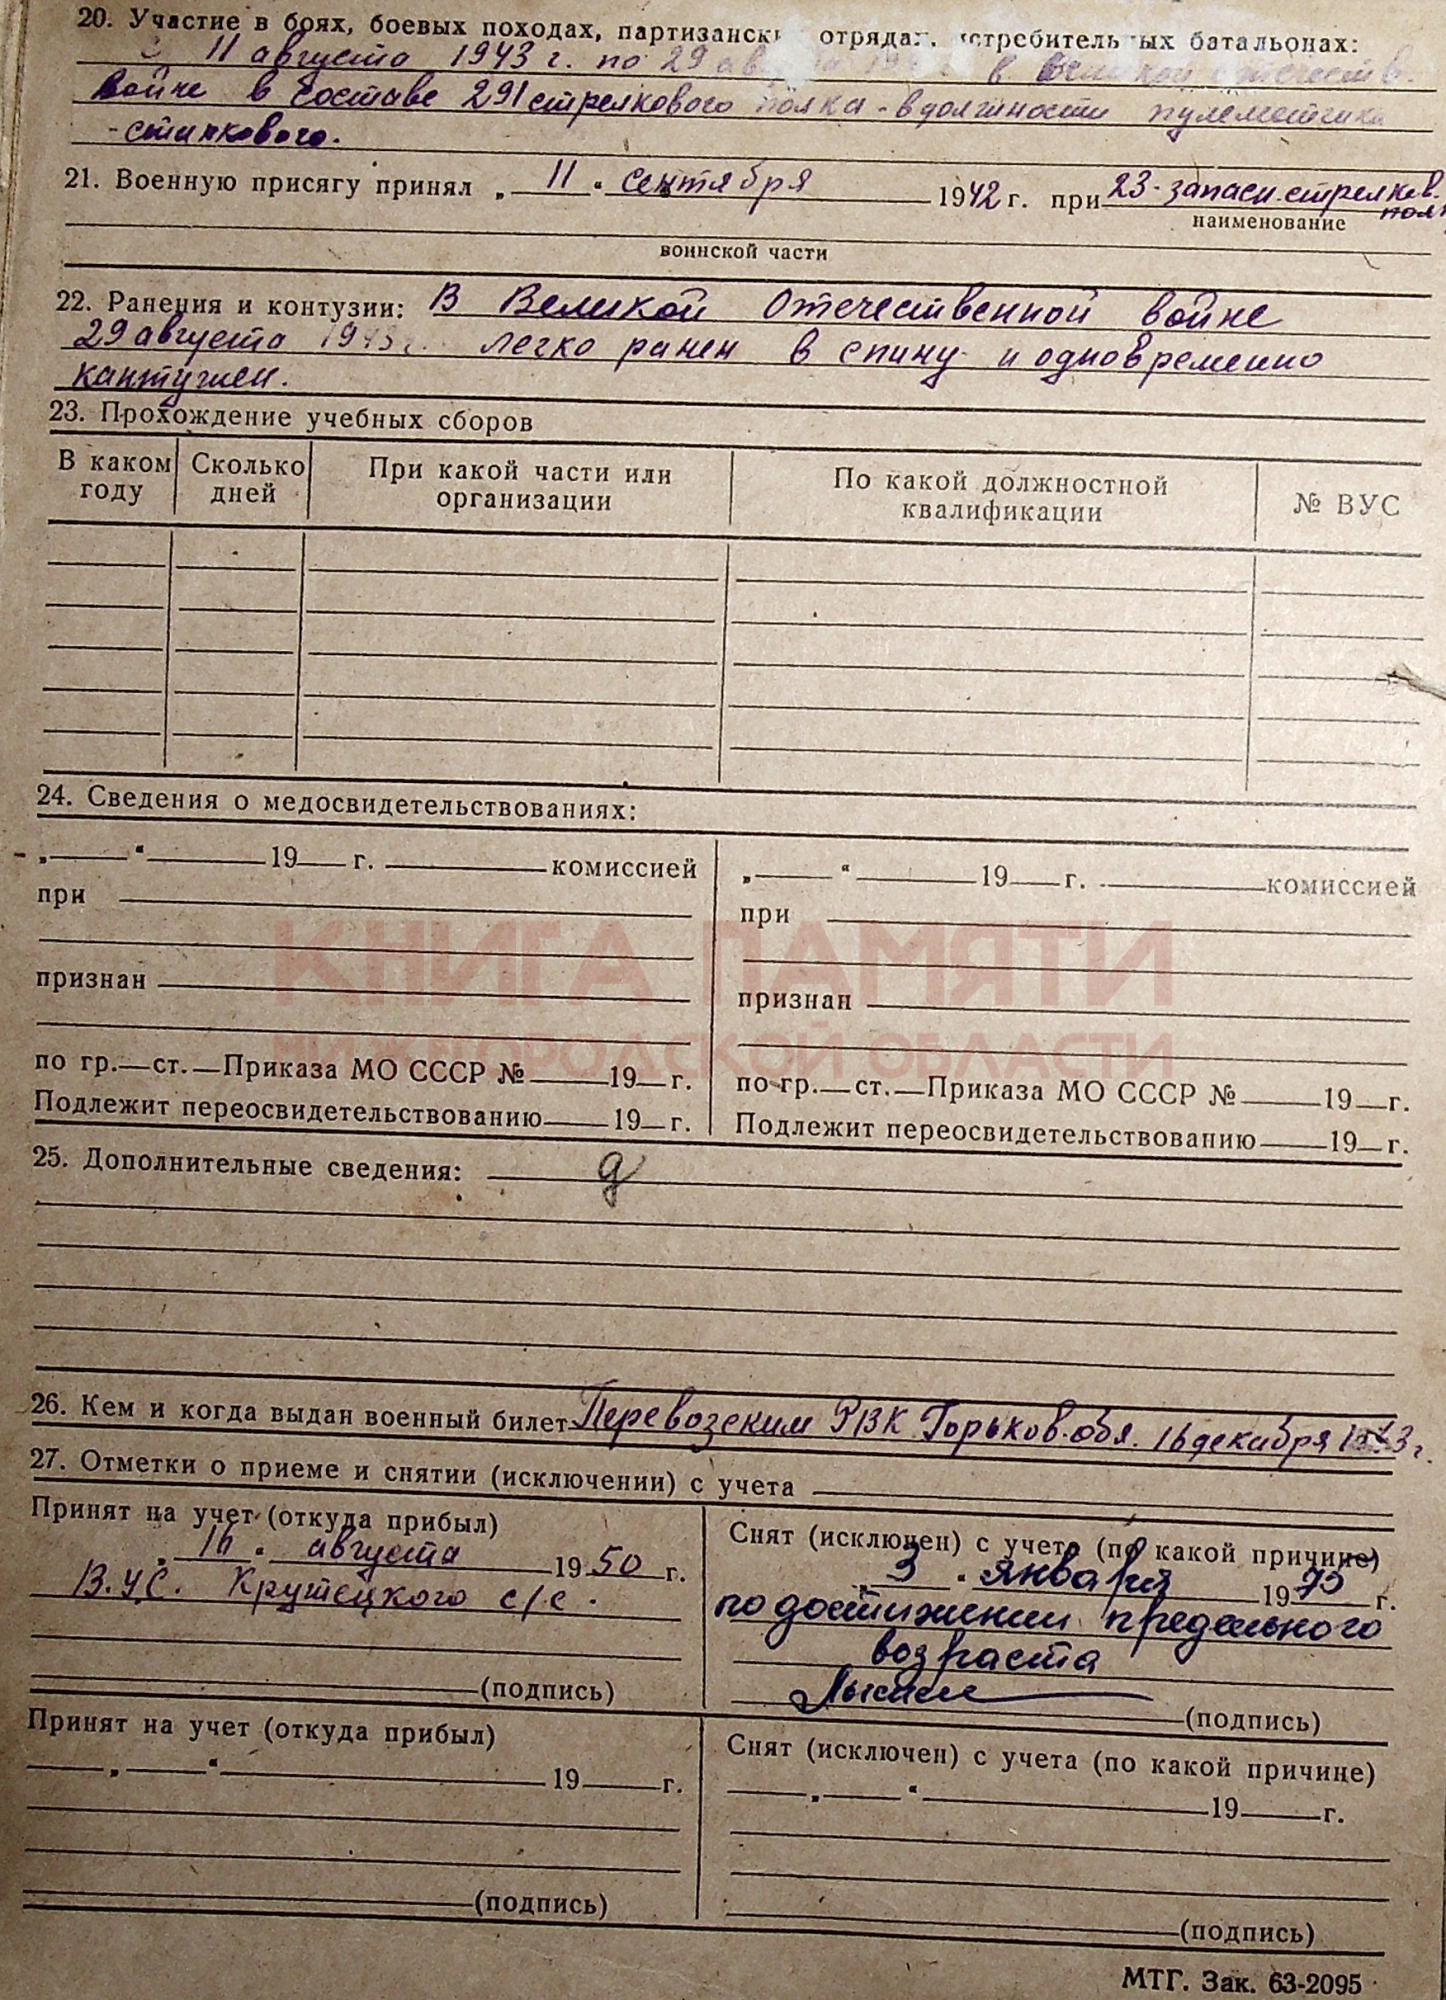 20. Участие в боях, боевых походах, партизанск отрядах, истребительных батальонах:
с 11 августа 1943 г. по 29 в Великой Отечеств.
войне в составе 291 стрелкового полка - в должности пулеметчика
- станкового.
21. Военную присягу принял „ 11 “ сентября 1942 г. при 23 - запасн. стрелков.
полк
наименование
воинской части
22. Ранения и контузии: В Великой Отечественной войне
29 августа 1943 г. легко ранен в спину и одновременно
кантужен.
23. Прохождение учебных сборов
В каком году Сколько дней При какой части или организации По какой должностной квалификации № ВУС
24. Сведения о медосвидетельствованиях:
„ “ 19 г. комиссией
при
признан
по гр. ст. Приказа МО СССР № 19 г.
Подлежит переосвидетельствованию 19 г.
„ “ 19 г. комиссией
при
признан
по гр. ст. Приказа МО СССР № 19 г.
Подлежит переосвидетельствованию 19 г.
КНИГА ПАМЯТИ
НИЖЕГОРОДСКОЙ ОБЛАСТИ
25. Дополнительные сведения:
26. Кем и когда выдан военный билет Перевозским РВК Горьков. обл. 16 декабря г.
27. Отметки о приеме и снятии (исключении) с учета
Принят на учет (откуда прибыл)
„ 16 “ августа 1950 г.
В.У.С. Крутецкого с/с.
(подпись)
Снят (исключен) с учета (по какой причине)
„ 3 “ января 1975 г.
по достижении предельного
возраста
(подпись)
Принят на учет (откуда прибыл)
„ “ 19 г.
(подпись)
Снят (исключен) с учета (по какой причине)
„ “ 19 г.
(подпись)
МТГ. Зак. 63-2095